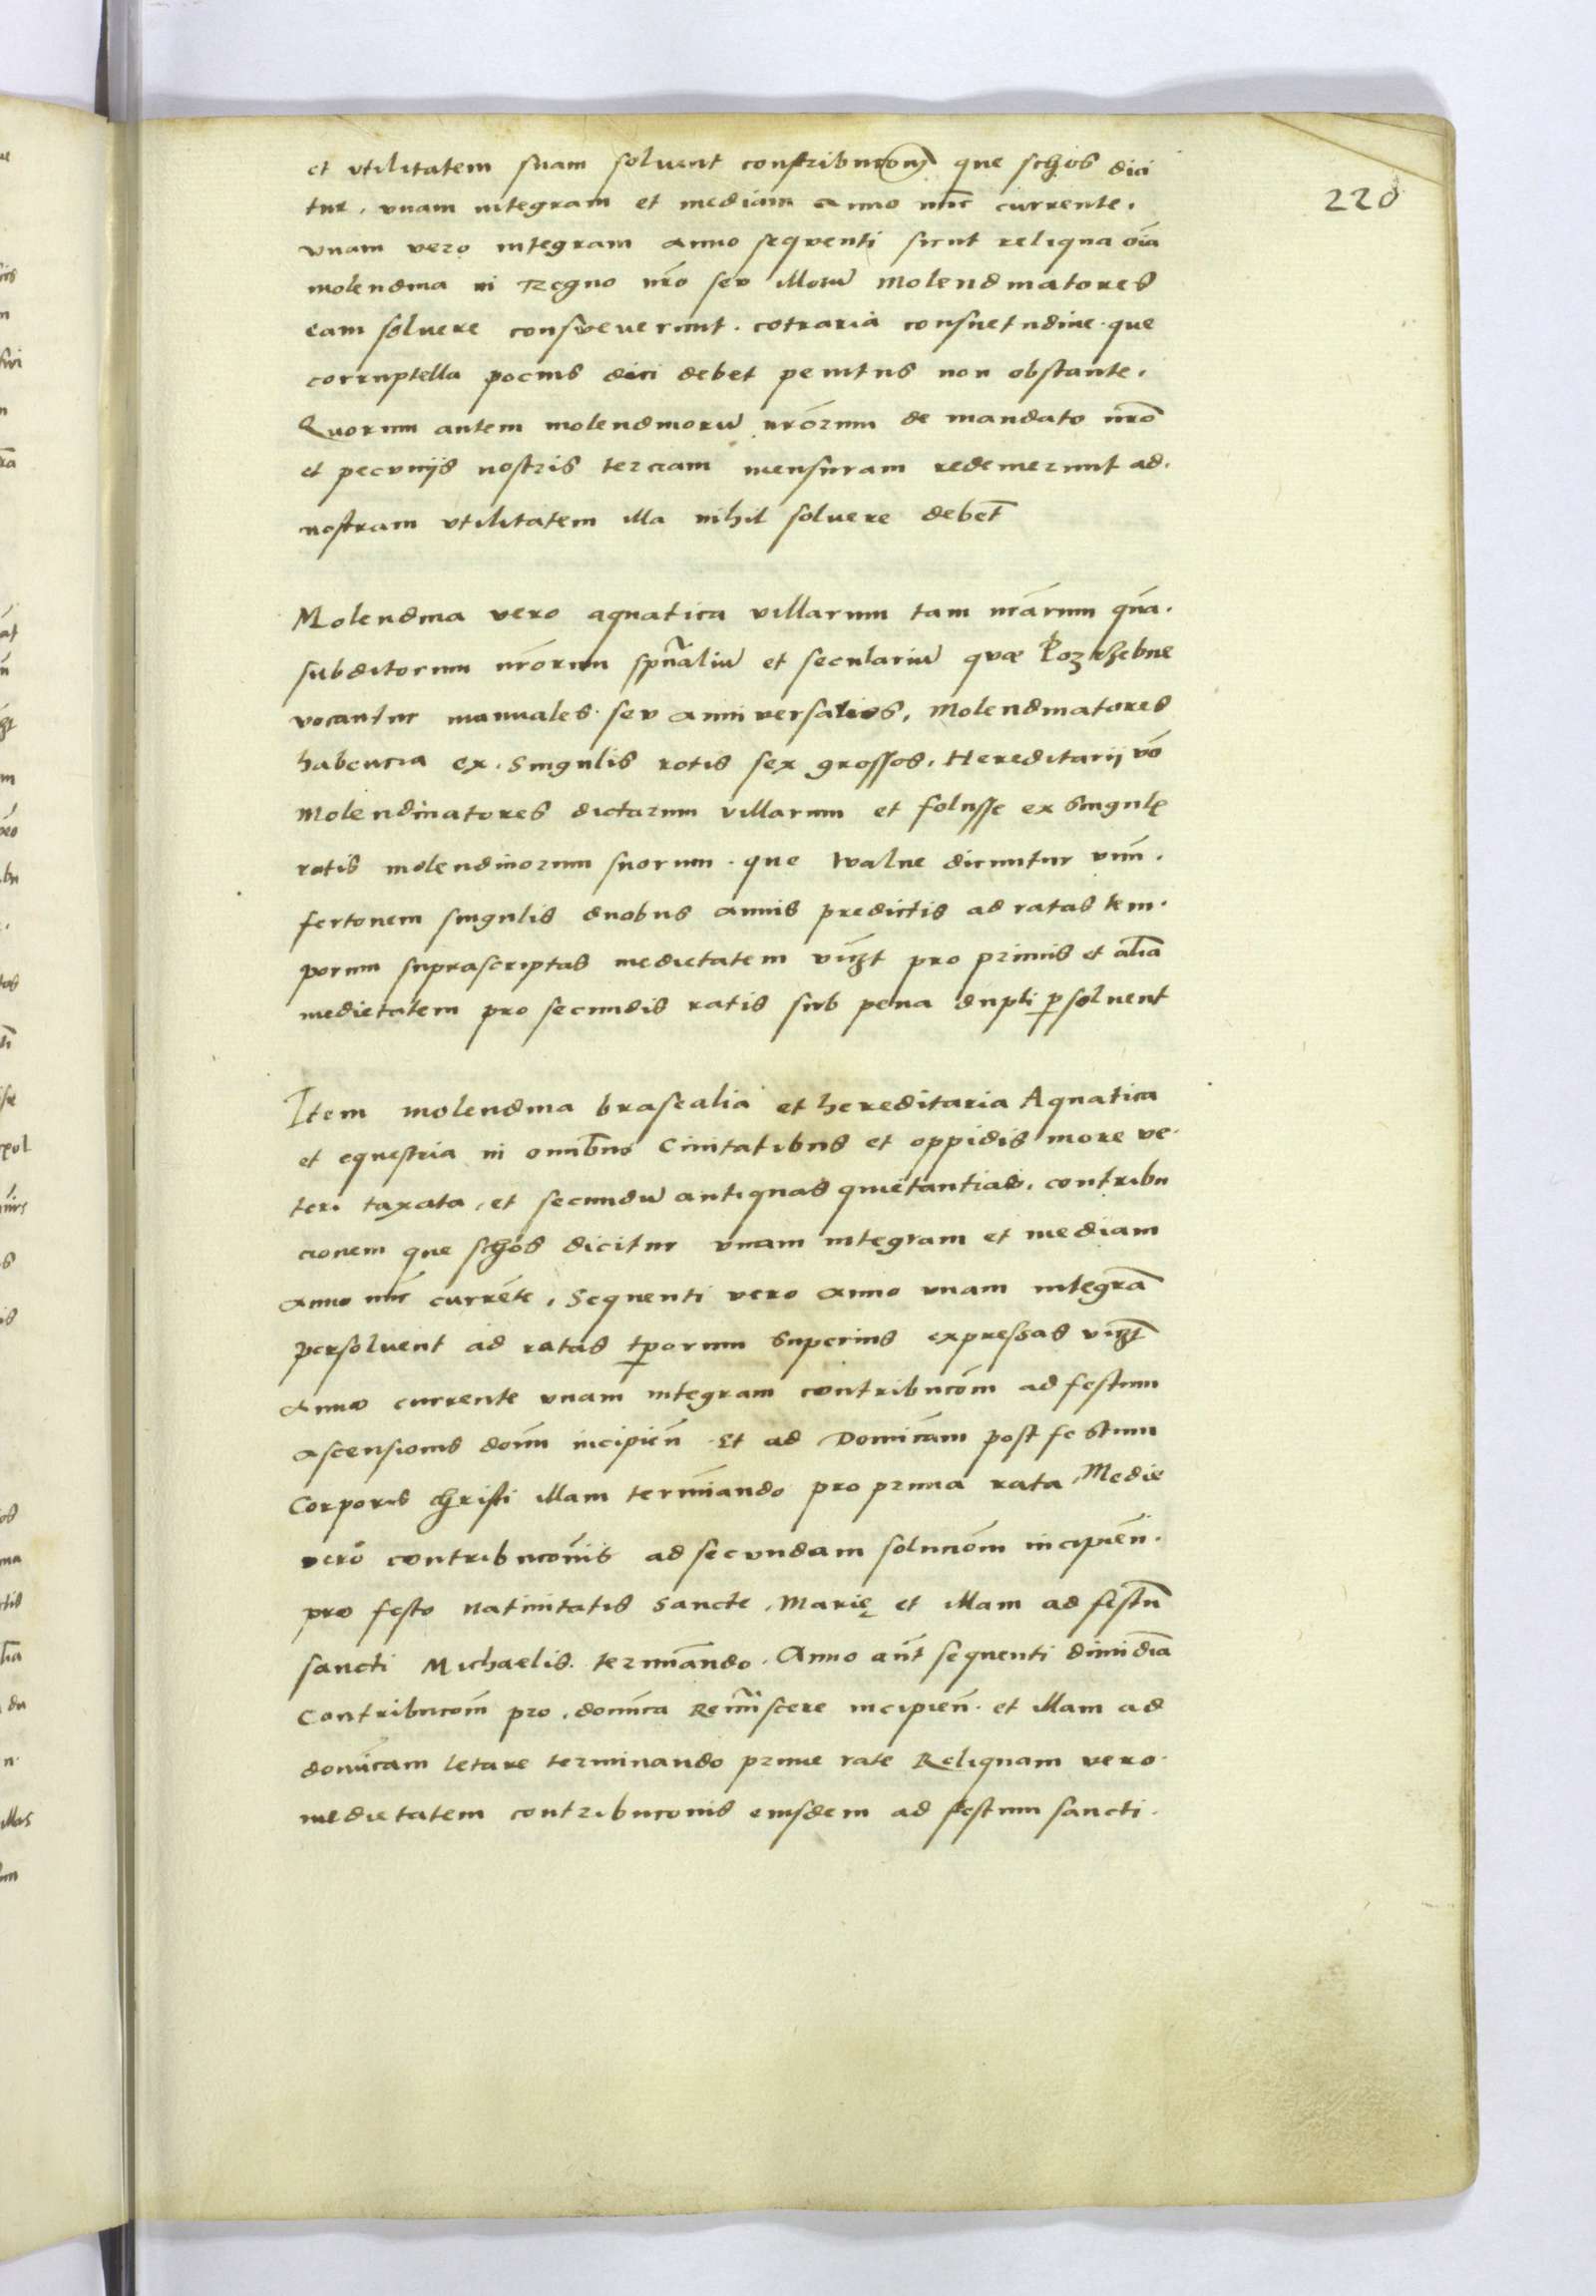 220
et vtilitatem suam soluent contribucōnē que schos dici
tur, vnam integram et mediam anno nūc currente,
vnam vero integram anno sequenti sicut reliqua oīa
molendina in Regno nr̄o seu illoꝝ Molendinatores
eam soluere consueuerunt. cōtraria consuetudine. que
corruptella pocius dici debet penitus non obstante.
Quorum autem molendinorū nr̄orum de mandato nr̄o
et pecunijs nostris terciam mensuram redemerunt ad.
nostram vtilitatem illa nihil soluere debēt
Molendina vero aquatica villarum tam nr̄arum qͣm.
subditorum nr̄orum spūaliū et seculariū quæ
vocantur manuales. seu anniversalios, Molendinatores
habencia ex. Singulis rotis sex grossos. Hereditarij vō
Molendinatores dictarum villarum et folusse ex singulꝭ
rotis molendinorum suorum. que walne dicuntur vnū.
fertonem singulis duobus annis predictis ad ratas tem.
porum suprascriptas medietatem vidzt pro primis et aliā
medietatem pro secundis ratis sub pena dupli ꝑsoluent
Item molendina brasealia et hereditaria Aquatica
et equestria in omnibus Ciuitatibus et oppidis more ve.
teri taxata, et secundū antiquas quietantias, contribu
cionem que schos dicitur vnam integram et mediam
anno nūc currēte, Sequenti vero anno vnam integrā
persoluent ad ratas tꝑorum superius expressas vidzt
Anno currente vnam integram contribucōm ad festum
ascensionis domī incipieñ. Et ad Dominicam post festum
Corporis christi illam termīando pro prima rata, Medie
vero contribucōnis ad secundam solucōm incipieñ.
pro festo Natiuitatis Sancte, Marię et illam ad festū
sancti Michaelis. termīando. Anno aūt sequenti dimidiā
Contribucōm pro. domīca Remīscere incipieñ. et illam ad
domīcam letare terminando prime rate Reliquam vero.
medietatem contribucōnis eiusdem ad festum sancti.